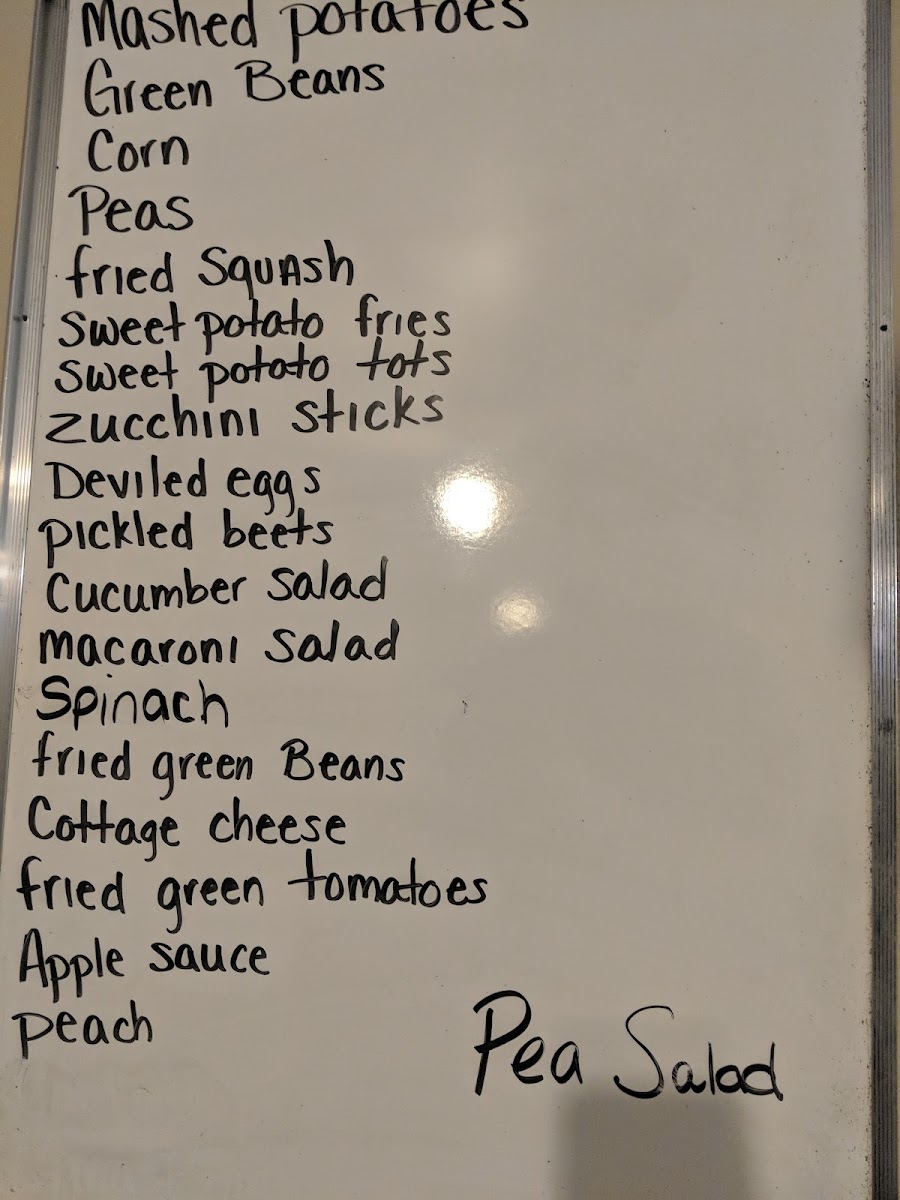 Mashed potatoes
Green Beans
Corn
Peas
fried Squash
sweet potato fries
sweet potato tots
zucchini sticks
Deviled eggs
pickled beets
Cucumber salad
macaroni salad
Spinach
fried green Beans
Cottage cheese
fried green tomatoes
Apple sauce
peach
Pea Salad